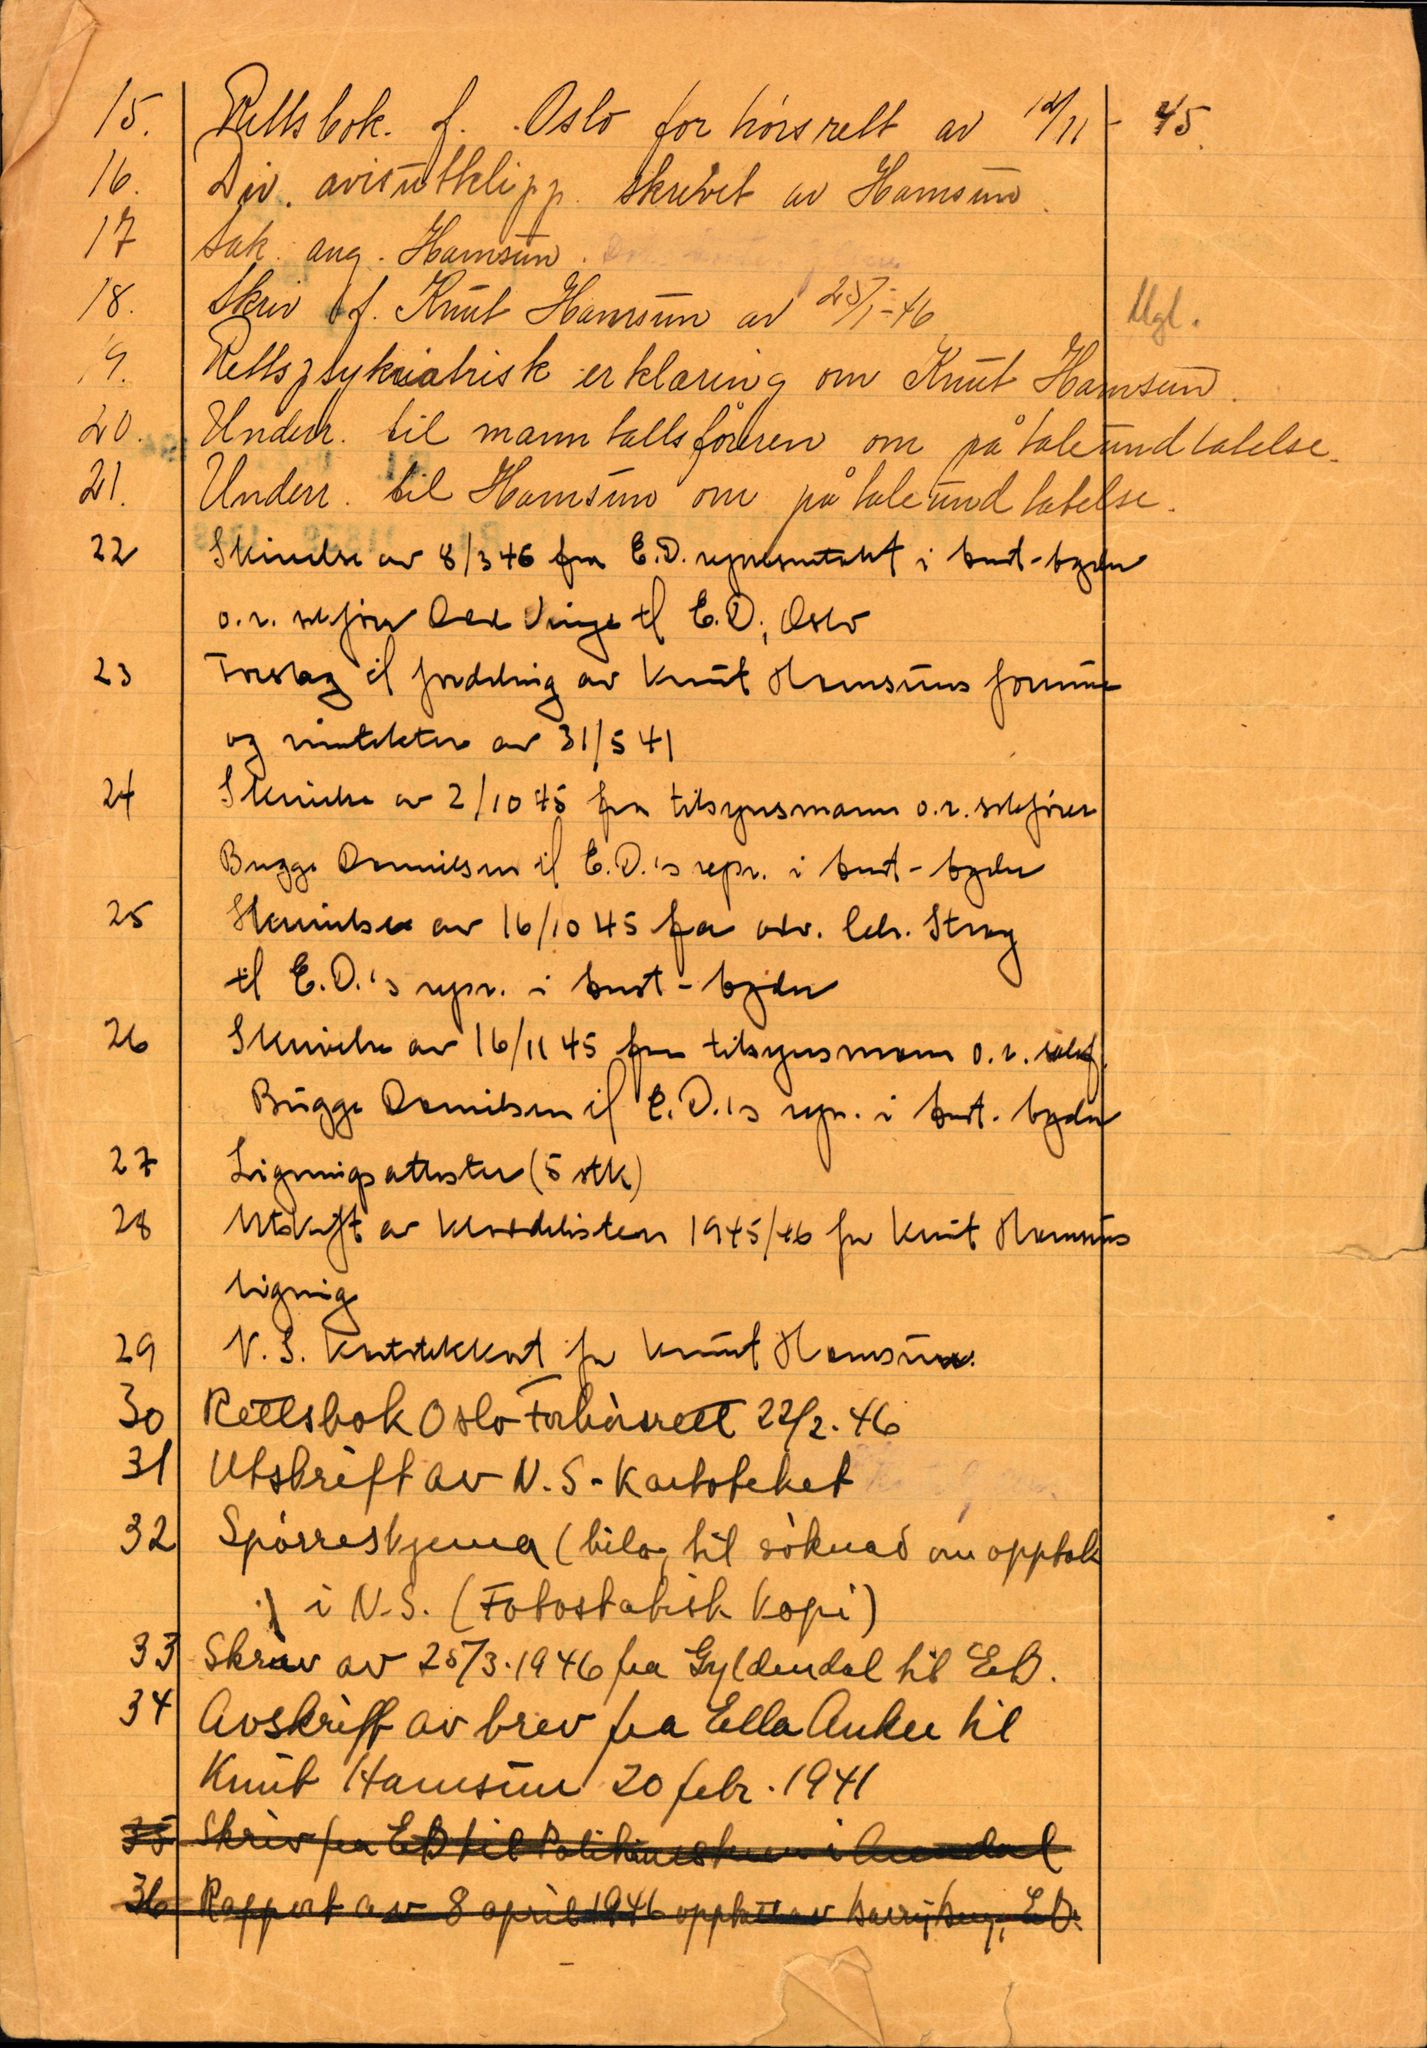 15. Rettsbok. f. Oslo forhörsrett av 12/11 - 45.
16. Div. avisutklipp. skrevet av Hamsun.
17 Sak. ang. Hamsun.
18. Skriv f. Knut Hamsun av 25/1-46 Mgl.
19. Rettspsykiatrisk erklæring om Knut Hamsun.
20. Underr. til manntallsföreren om påtaleundlatelse.
21. Underr. til Hamsun om påtaleundlatelse.
22 Skrivelse av 8/3 46 fra E.D. representant i Aust-Agder
o.r. sakförer Odd Vinge til E.D., Oslo
23 Forslag til fordeling av Knut Hamsuns formue
og inntekter av 31/5 41
24 Skrivelse av 2/10 45 fra tilsynsmann o.r. sakförer
Bugge Danielsen til E.D.'s repr. i Aust-Agder
25 Skrivelse av 16/10 45 fra adv. Chr. Stray
til E.D.'s repr. i Aust-Agder
26 Skrivelse av 16/11 45 fra tilsynsmann o.r. sakf.
Bugge Danielsen til E.D.'s repr. i Aust-Agder
27 Ligningsattester (5 stk)
28 Utskrift av 1945/46 for Knut Hamsuns
ligning
29 N.S. Kartotekkort for Knut Hamsun.
30 Rettsbok Oslo Forhörsrett 22/2.46
31 Utskrift av N.S-Kartoteket
32 Spörreskjema (bilag til söknad om opptak
i N.S. (Fotostatisk kopi)
33 Skriv av 25/3.1946 fra Gyldendal til E.D.
34 Avskrift av brev fra Ella Anker til
Knut Hamsun 20 febr. 1941
35 Skriv fra ED til Politikammeret i Arendal
36 Rapport av 8 april 1946 opptatt av E.D.